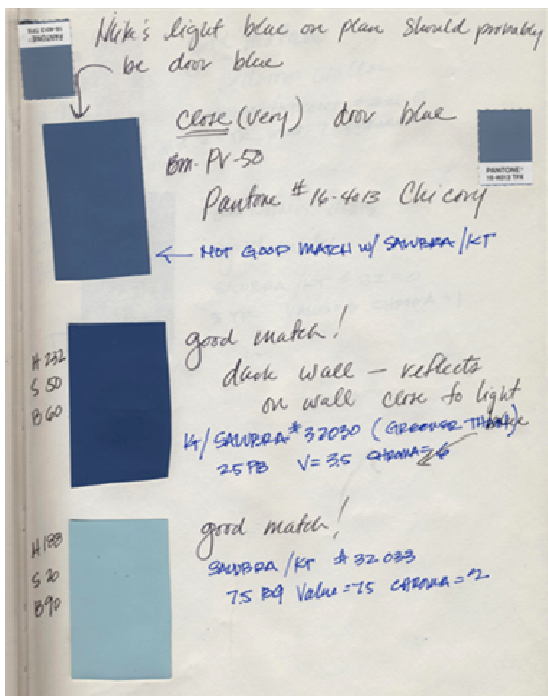 light blue on plan should probably
be door blue
close (very) door blue
BM-PV-50
Pantone # 16-4013 Chicory
PANTONE®
16-4013 TPX
← NOT GOOD MATCH W/ SALUBRA/KT
good match!
dark wall — reflects
on wall close to light
H 232
S 50
B 60
KT/SALUBRA # 32030 (GREENER THAN)
2.5 PB V = 3.5 CHROMA = 6
good match!
H 188
S 20
B 90
SALUBRA/KT # 32033
7.5 BG Value = 7.5 CHROMA = 2